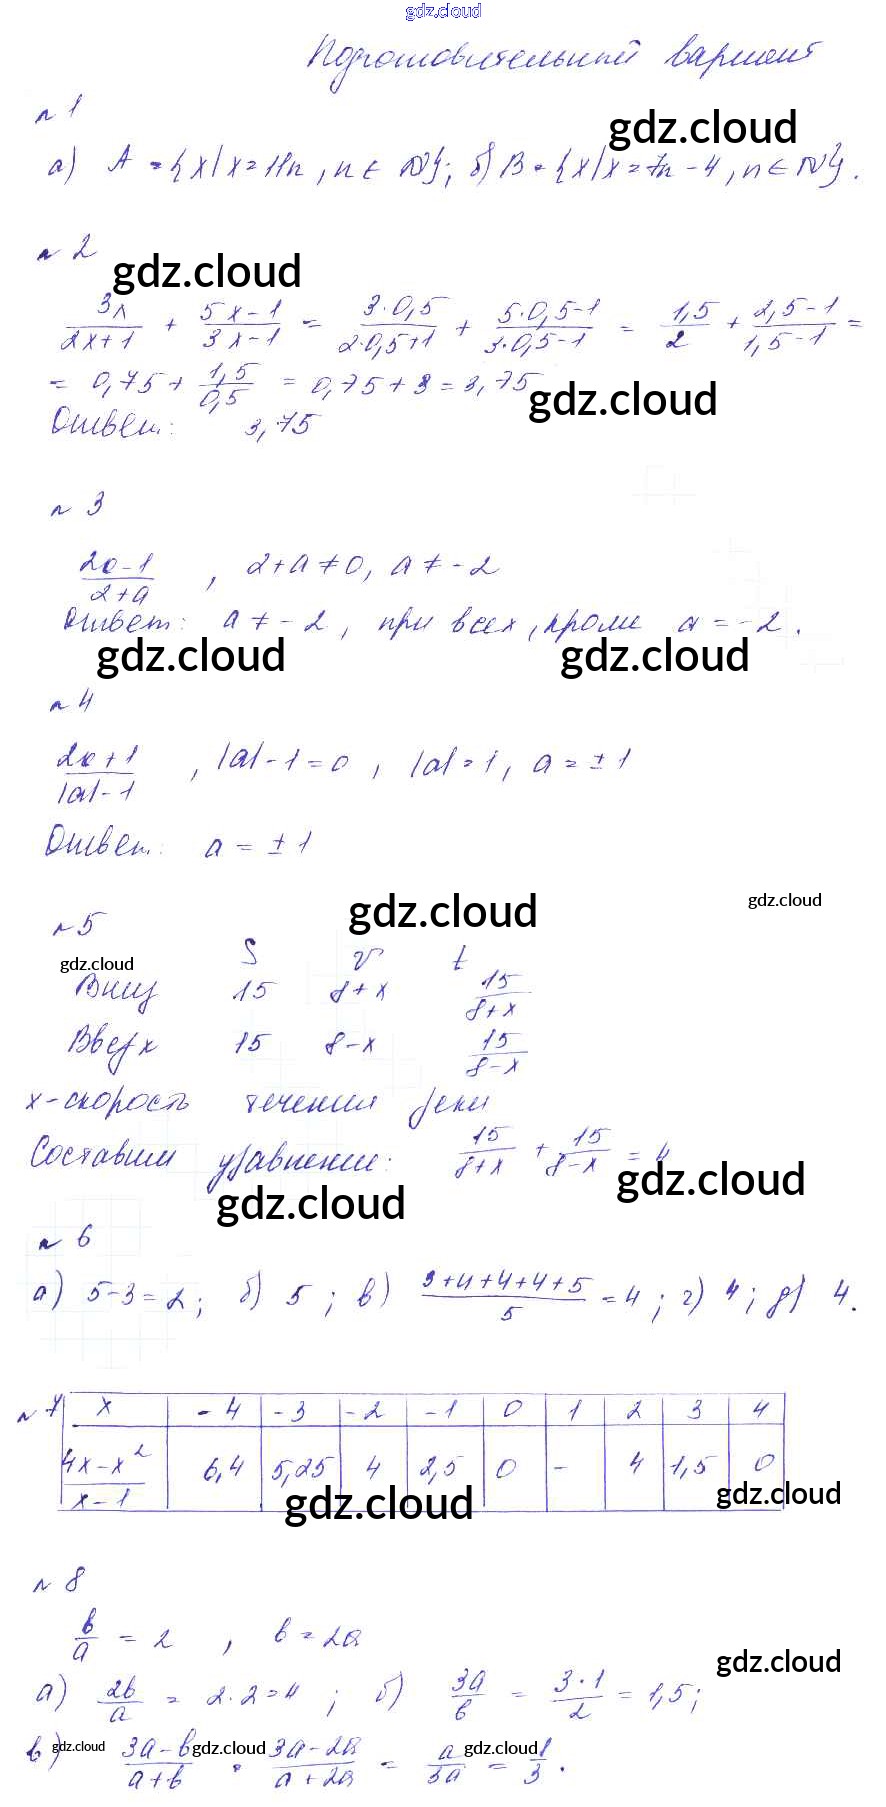 gdz.cloud
Подготовительный вариант
№ 1
gdz.cloud
а) A = {x | x = 11n, n ∈ N}; б) B = {x | x = 7n - 4, n ∈ N}.
№ 2
gdz.cloud
3x/(2x+1) + (5x-1)/(3x-1) = 3·0,5/(2·0,5+1) + (5·0,5-1)/(3·0,5-1) = 1,5/2 + (2,5-1)/(1,5-1) =
= 0,75 + 1,5/0,5 = 0,75 + 3 = 3,75
gdz.cloud
Ответ: 3,75
№ 3
(2a-1)/(2+a), 2+a ≠ 0, a ≠ -2
Ответ: a ≠ -2, при всех, кроме a = -2.
gdz.cloud gdz.cloud
№ 4
(2a+1)/(|a|-1), |a|-1 = 0, |a| = 1, a = ±1
Ответ: a = ±1
gdz.cloud gdz.cloud
№ 5
gdz.cloud
S v t
Вниз 15 8+x 15/(8+x)
Вверх 15 8-x 15/(8-x)
x - скорость течения реки
Составим уравнение: 15/(8+x) + 15/(8-x) = 4
gdz.cloud gdz.cloud
№ 6
а) 5-3=2; б) 5; в) (3+4+4+4+5)/5 = 4; г) 4; д) 4.
№ 7 x -4 -3 -2 -1 0 1 2 3 4
(4x-x²)/(x-1) 6,4 5,25 4 2,5 0 - 4 1,5 0
gdz.cloud gdz.cloud
№ 8
b/a = 2, b = 2a
gdz.cloud
а) 2b/a = 2·2=4; б) 3a/b = 3·1/2 = 1,5;
в) (3a-b)/(a+b) = (3a-2a)/(a+2a) = a/3a = 1/3.
gdz.cloud gdz.cloud gdz.cloud